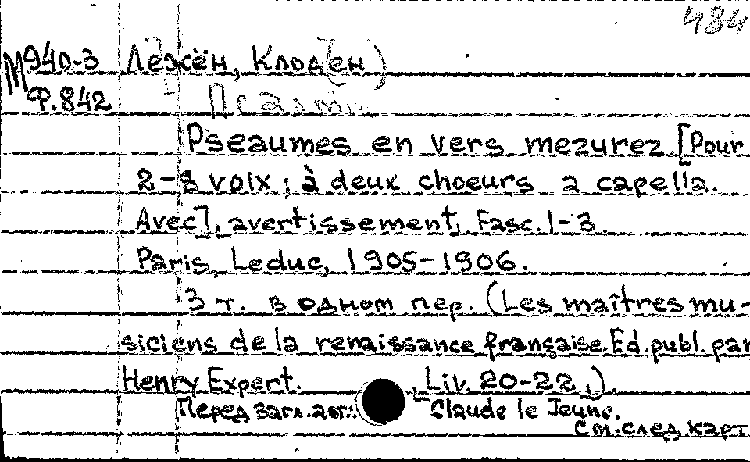 484
М940-3 Лежён, Клод(ен)
Ф.842 Псалмы
Pseaumes en vers mezurez [Pour
2-8 voix; à deux choeurs a capella.
Avec], avertissement, Fasc. 1-3.
Paris, Leduc, 1905-1906.
3 т. в одном пер. (Les maîtres mu-
siciens de la renaissance française. Ed. publ. par
Henry Expert. , Liv. 20-22,)
Перед загл. авт.: Claude le Jeune.
См. след карт